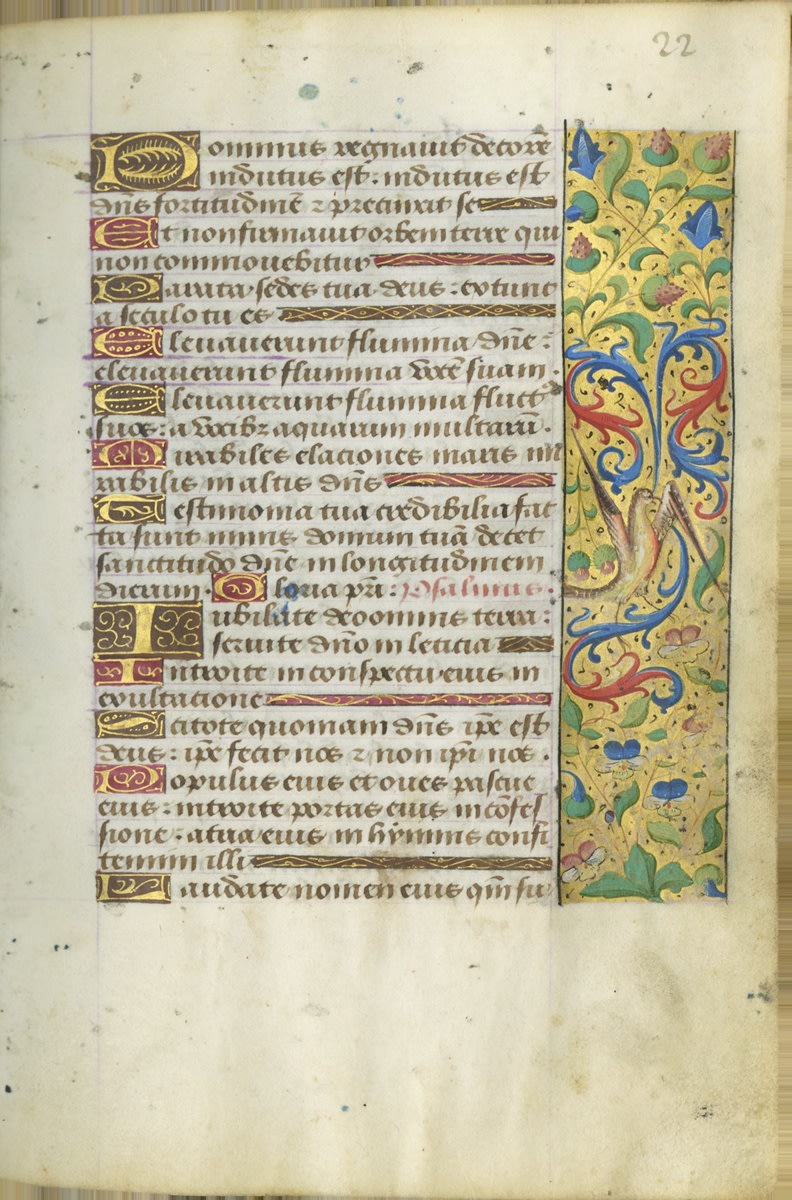 22
Dominus regnauit decorē
indutus est: indutus est
dn̄s fortitudinē ⁊ precinxit se
Et non firmauit orbem terre qui
non commouebitur
Parata sedes tua deus: ex tunc
a seculo tu es
Eleuauerunt flumina dn̄e:
eleuauerunt flumina vocē suam.
Eleuauerunt flumina fluct9
suos: a vocibꝫ aquarum multarū.
Mirabiles elaciones maris mi
rabilis in altis dn̄s
Testimonia tua credibilia fac
ta sunt nimis domum tuā decet
sanctitudo dn̄e in longitudinem
dierum. Gloria pr̄i: Psalmus.
Iubilate deo omnis terra:
seruite dn̄o in leticia
Introite in conspectu eius in
exultacione
Scitote quoniam dn̄s ip̄e est
deus: ip̄e fecit nos ⁊ non ip̄i nos.
Populus eius et oues pascue
eius: introite portas eius in cōfes
sione: atria eius in hymnis confi
temini illi
Laudate nomen eius qm̄ su